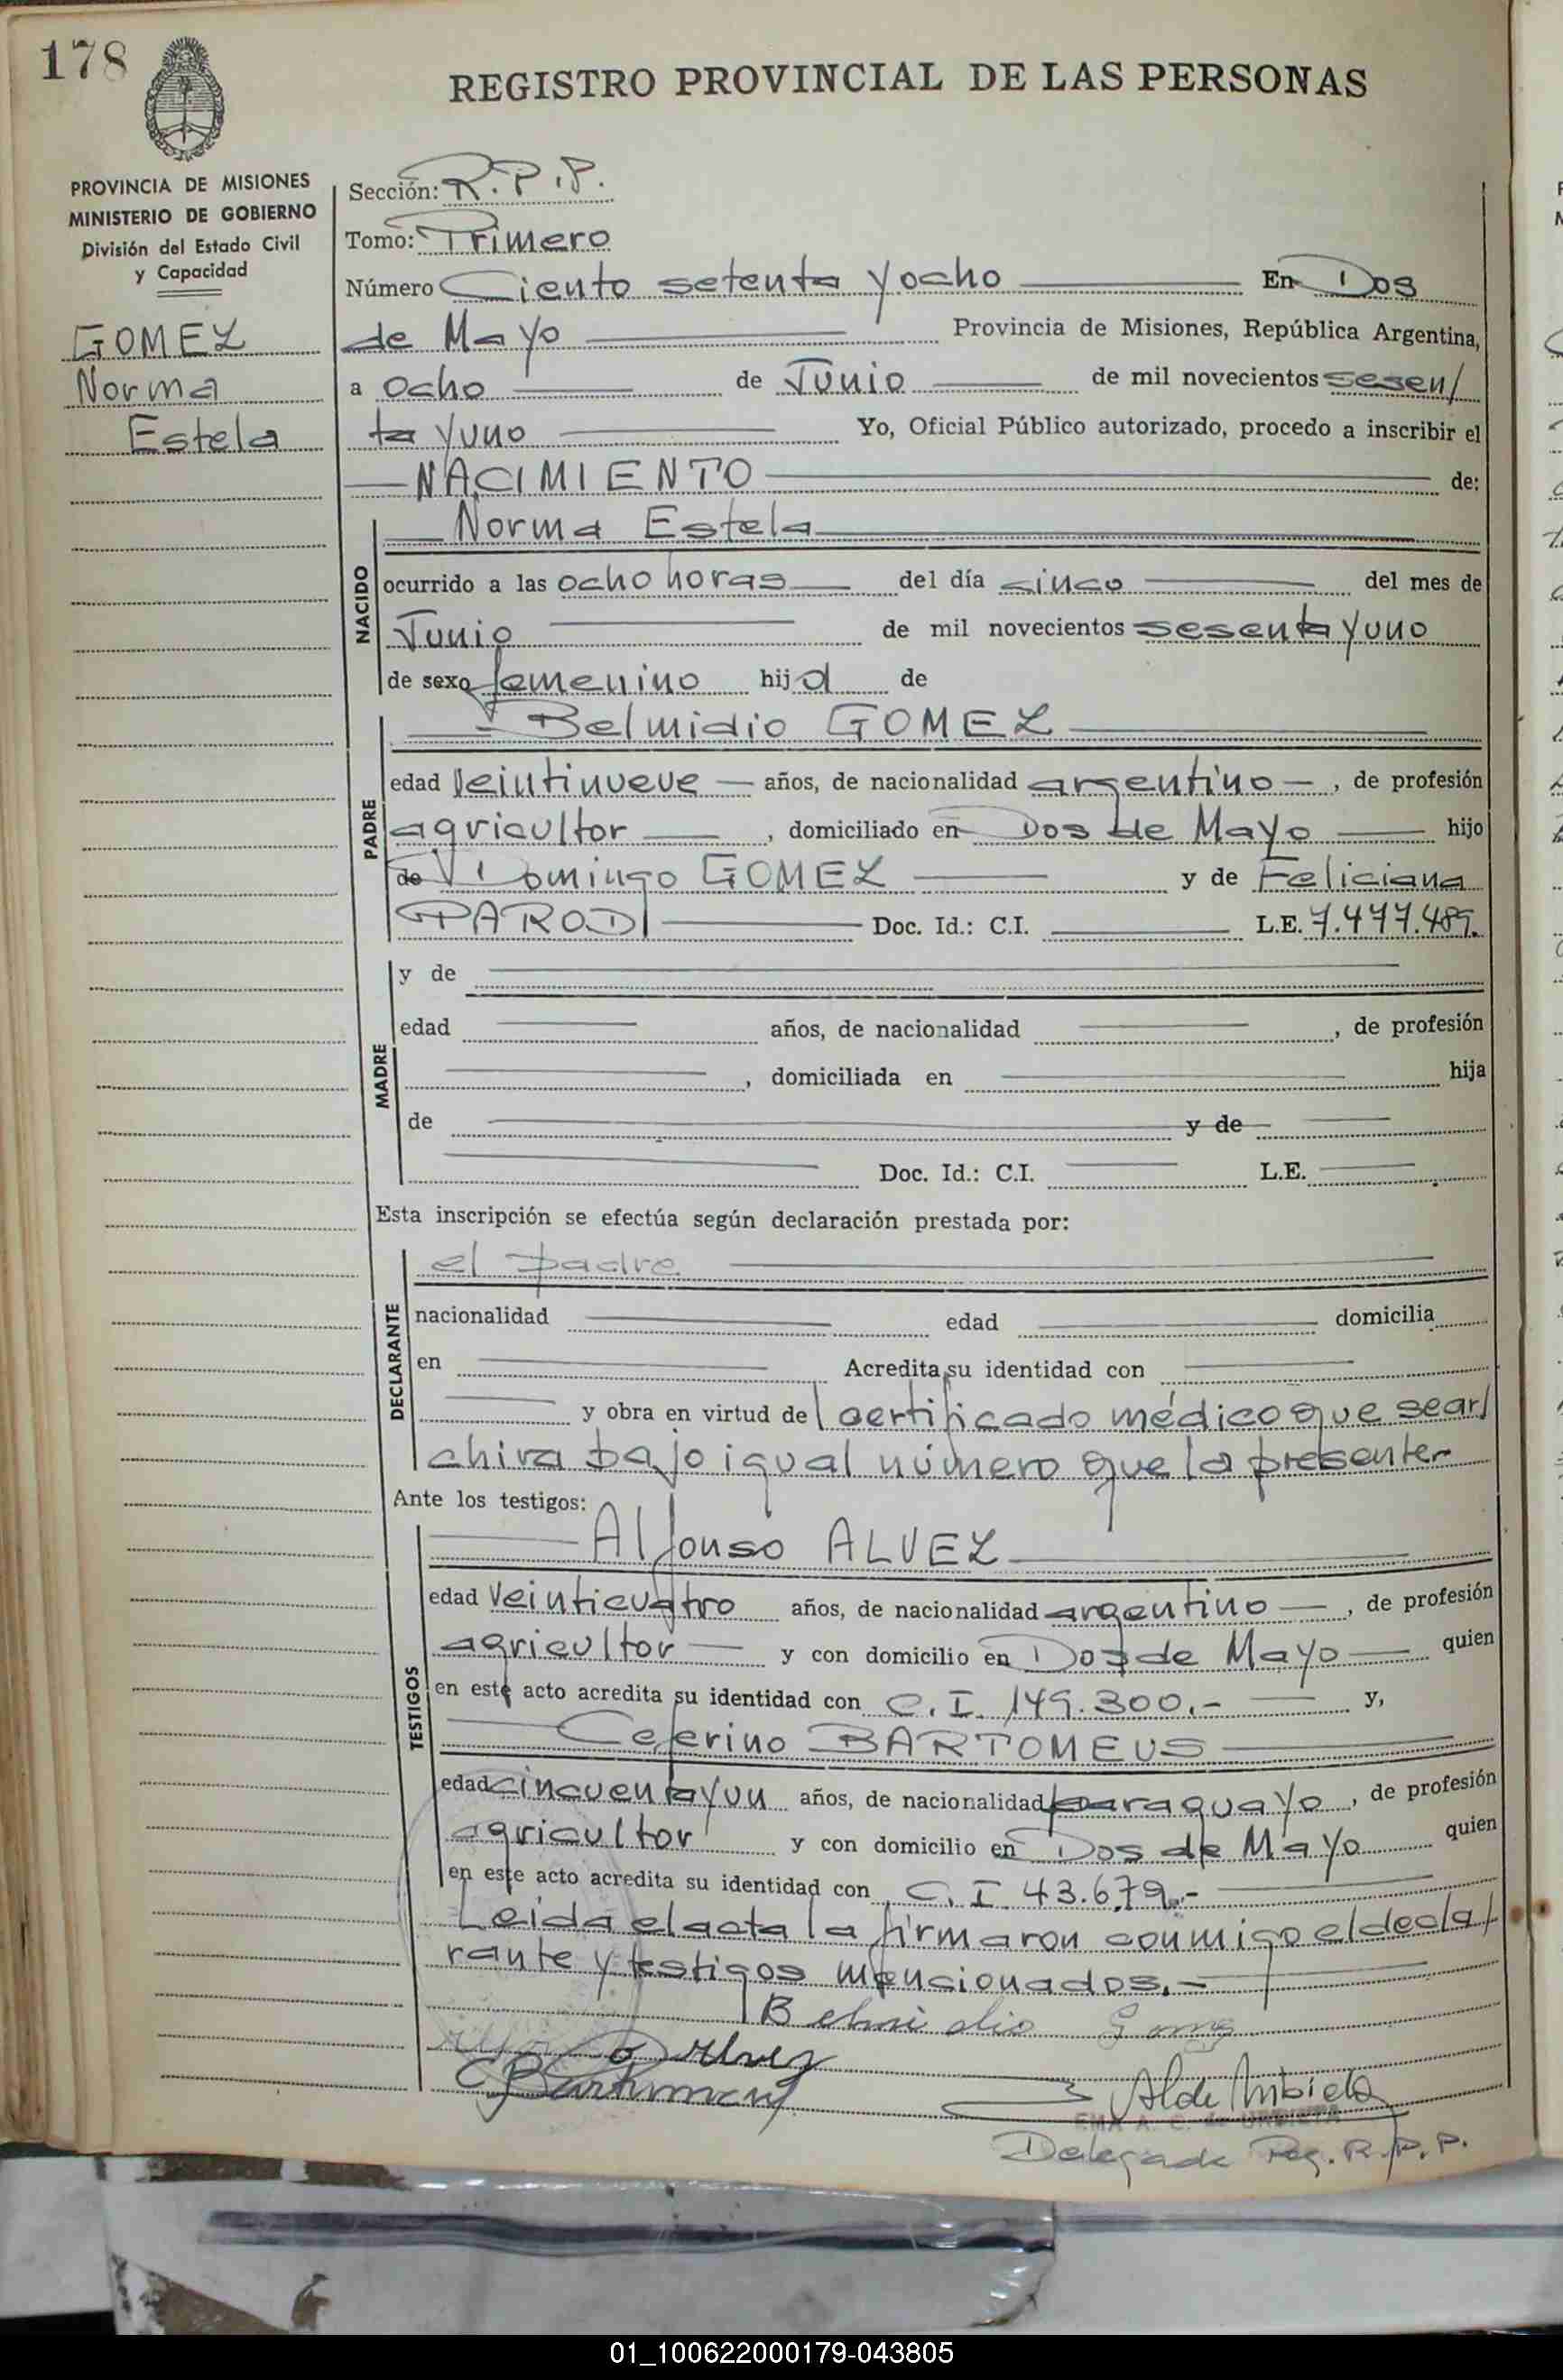 178
REGISTRO PROVINCIAL DE LAS PERSONAS
PROVINCIA DE MISIONES
MINISTERIO DE GOBIERNO
División del Estado Civil
y Capacidad
GOMEZ
Norma
Estela
Sección: R.P.P.
Tomo: Primero
Número Ciento setenta y ocho En Dos
de Mayo Provincia de Misiones, República Argentina,
a ocho de Junio de mil novecientos sesen/
ta y uno Yo, Oficial Público autorizado, procedo a inscribir el
NACIMIENTO de:
NACIDO
Norma Estela
ocurrido a las ocho horas del día cinco del mes de
Junio de mil novecientos sesenta y uno
de sexo femenino hija de
PADRE
Belmidio GOMEZ
edad veintinueve años, de nacionalidad argentino, de profesión
agricultor, domiciliado en Dos de Mayo hijo
de Domingo GOMEZ y de Feliciana
PARODI Doc. Id.: C.I. L.E. 7.477.489.
MADRE
y de
edad años, de nacionalidad , de profesión
, domiciliada en hija
de y de
Doc. Id.: C.I. L.E.
Esta inscripción se efectúa según declaración prestada por:
DECLARANTE
el padre
nacionalidad edad domicilia
en Acredita su identidad con
y obra en virtud del certificado médico que se ar/
chiva bajo igual número que la presente
Ante los testigos:
TESTIGOS
Alfonso ALVEZ
edad veinticuatro años, de nacionalidad argentino, de profesión
agricultor y con domicilio en Dos de Mayo quien
en este acto acredita su identidad con C.I. 149.300.- y,
Ceferino BARTOMEUS
edad cincuenta y un años, de nacionalidad paraguayo, de profesión
agricultor y con domicilio en Dos de Mayo quien
en este acto acredita su identidad con C.I 43.679.-
Leida el acta la firmaron conmigo el decla/
rante y testigos mencionados.-
Belmidio Gomez
Alvez
C Bartomeus
Alde Urbieta
EMA A. C. de URBIETA
Delegada Reg. R.P.P.
01_100622000179-043805